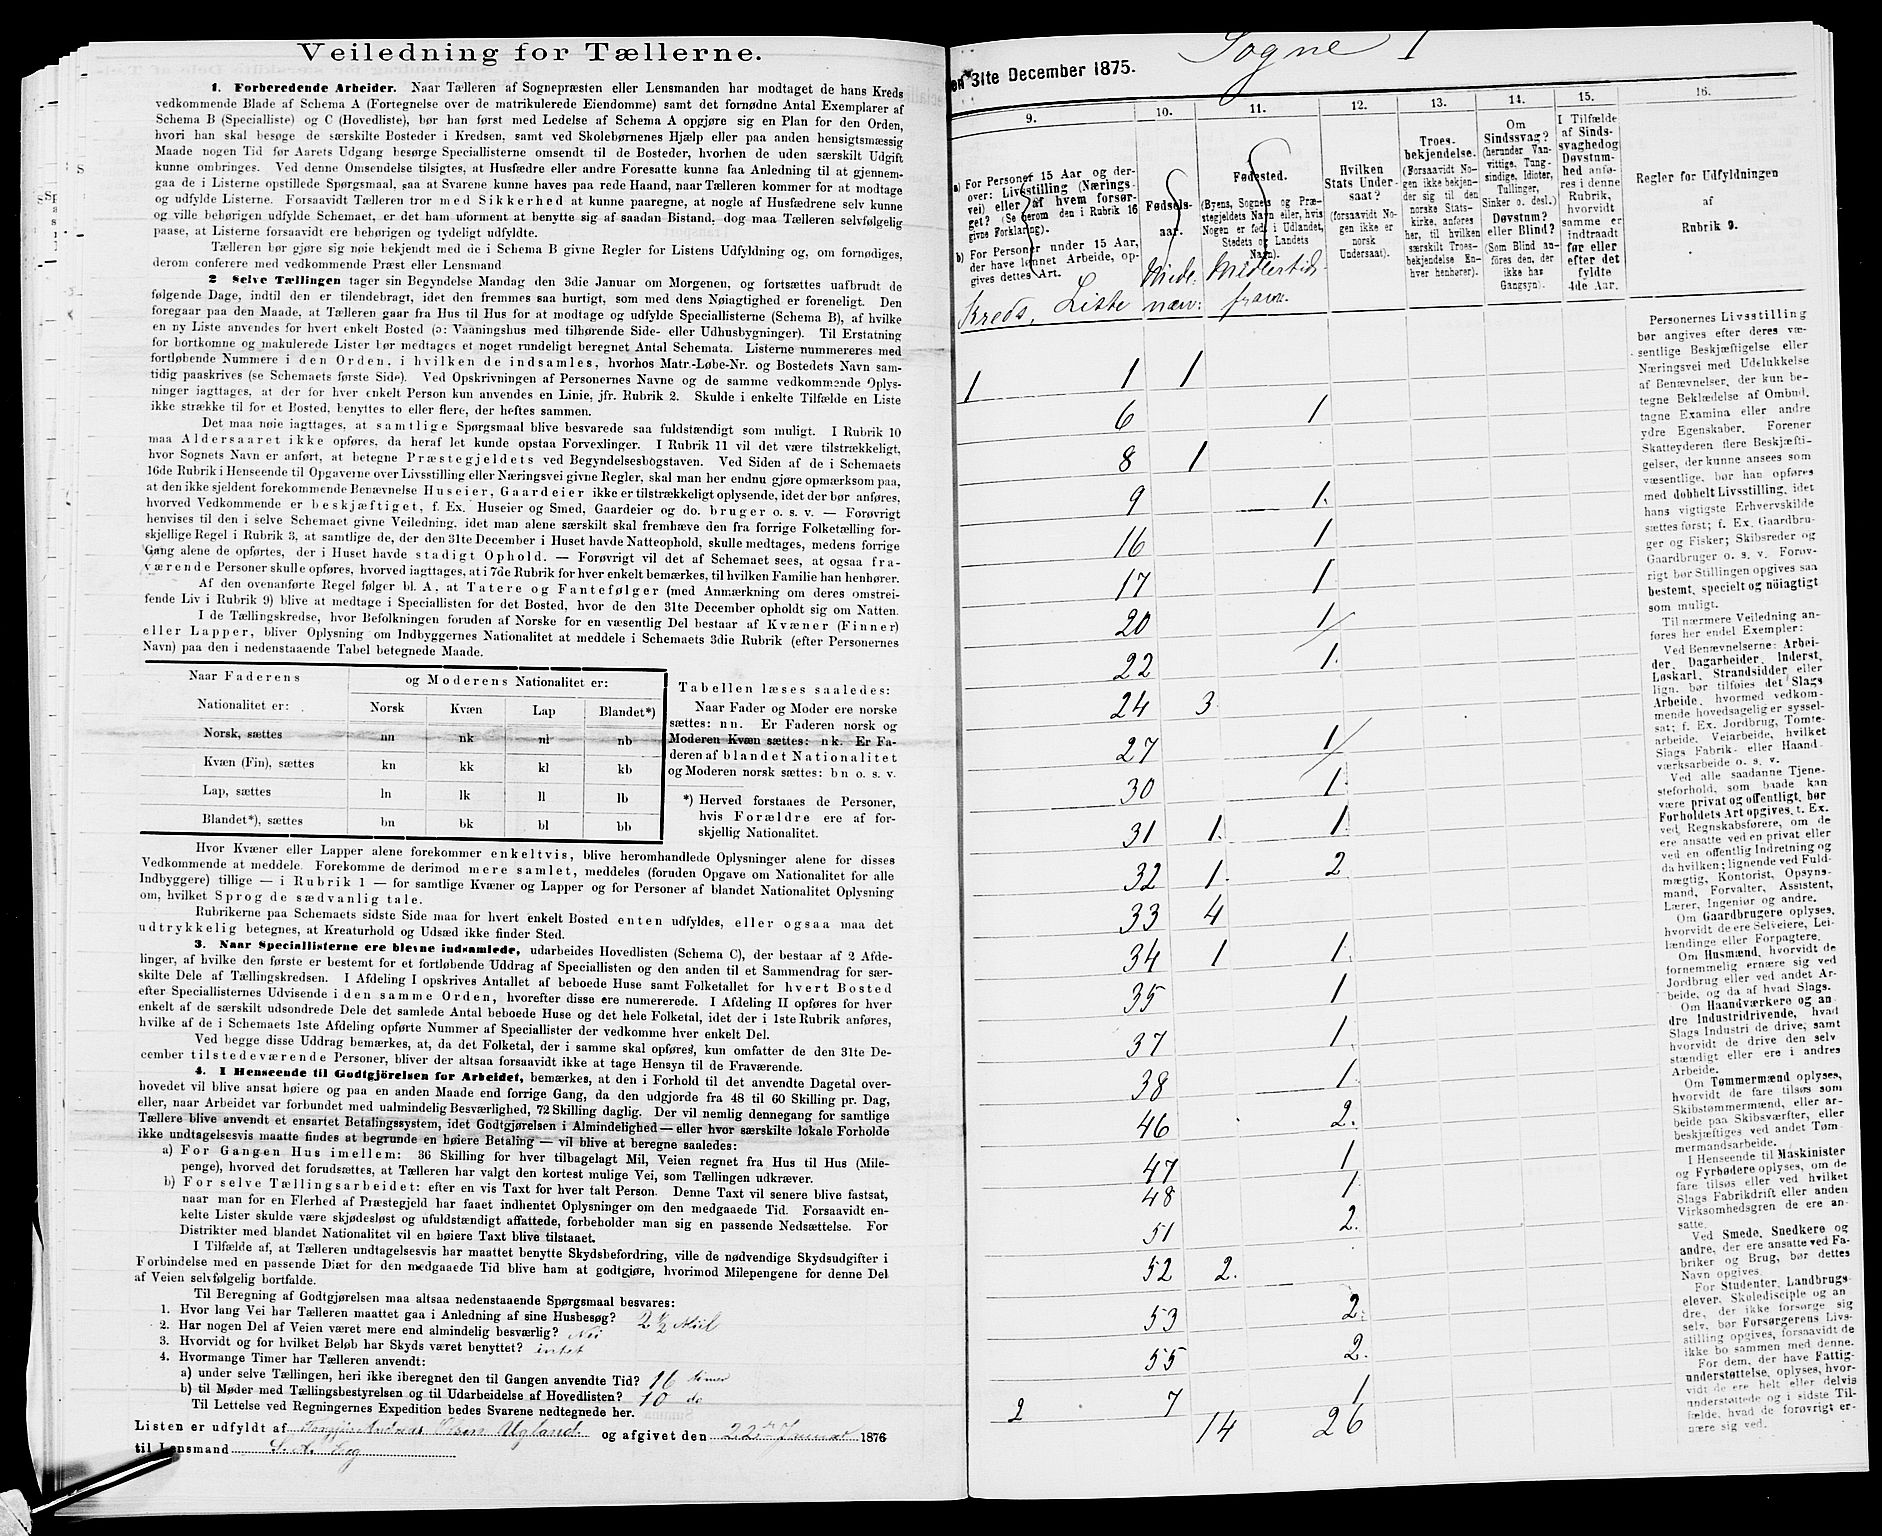 Veiledning for Tællerne.
1. Forberedende Arbeider. Naar Tælleren af Sognepræsten eller Lensmanden har modtaget de hans Kreds
vedkommende Blade af Schema A (Fortegnelse over de matrikulerede Eiendomme) samt det fornødne Antal Exemplarer af
Schema B (Specialliste) og C (Hovedliste), bør han først med Ledelse af Schema A opgjøre sig en Plan for den Orden,
hvori han skal besøge de særskilte Bosteder i Kredsen, samt ved Skolebørnenes Hjælp eller paa anden hensigtsmæssig
Maade nogen Tid før Aarets Udgang besørge Speciallisterne omsendt til de Bosteder, hvorhen de uden særskilt Udgift
kunne ombringes. Ved denne Omsendelse tilsigtes, at Husfædre eller andre Foresatte kunne faa Anledning til at gjennem-
gaa de i Listerne opstillede Spørgsmaal, saa at Svarene kunne haves paa rede Haand, naar Tælleren kommer for at modtage
og udfylde Listerne. Forsaavidt Tælleren tror med Sikkerhed at kunne paaregne, at nogle af Husfædrene selv kunne
og ville behørigen udfylde Schemaet, er det ham uforment at benytte sig af saadan Bistand, dog maa Tælleren selvfølgelig
paase, at Listerne forsaavidt ere behørigen og tydeligt udfyldte.
Tælleren bør gjøre sig nøie bekjendt med de i Schema B givne Regler for Listens Udfyldning og, om fornødiges,
derom conferere med vedkommende Præst eller Lensmand
2 Selve Tællingen tager sin Begyndelse Mandag den 3die Januar om Morgenen, og fortsættes uafbrudt de
følgende Dage, indtil den er tilendebragt, idet den fremmes saa hurtigt, som med dens Nøiagtighed er foreneligt. Den
foregaar paa den Maade, at Tælleren gaar fra Hus til Hus for at modtage og udfylde Speciallisterne (Schema B), af hvilke
en ny Liste anvendes for hvert enkelt Bosted (ɔ: Vaaningshus med tilhørende Side- eller Udhusbygninger). Til Erstatning
for bortkomne og makulerede Lister bør medtages et noget rundeligt beregnet Antal Schemata. Listerne nummereres med
fortløbende Nummere i den Orden, i hvilken de indsamles, hvorhos Matr.-Løbe-Nr. og Bostedets Navn sam-
tidig paaskrives (se Schemaets første Side). Ved Opskrivningen af Personernes Navne og de samme vedkommende Oplys-
ninger iagttages, at der for hver enkelt Person kun anvendes en Linie, jfr. Rubrik 2. Skulde i enkelte Tilfælde en Liste
ikke strække til for et Bosted, benyttes to eller flere, der heftes sammen.
Det maa nøie iagttages, at samtlige Spørgsmaal blive besvarede saa fuldstændigt som muligt. I Rubrik 10
maa Aldersaaret ikke opføres, da heraf let kunde opstaa Forvexlinger. I Rubrik 11 vil det være tilstrækkeligt,
hvor Sognets Navn er anført, at betegne Præstegjeldets ved Begyndelsesbogstaven. Ved Siden af de i Schemaets
16de Rubrik i Henseende til Opgaverne over Livsstilling eller Næringsvei givne Regler, skal man her endnu gjøre opmærksom paa,
at den ikke sjeldent forekommende Benævnelse Huseier, Gaardeier ikke er tilstrækkeligt oplysende, idet der bør anføres,
hvorved Vedkommende er beskjæftiget, f. Ex. Huseier og Smed, Gaardeier og do. bruger o. s. v. — Forøvrigt
henvises til den i selve Schemaet givne Veiledning, idet man alene særskilt skal fremhæve den fra forrige Folketælling for-
skjellige Regel i Rubrik 3, at samtlige de, der den 31te December i Huset havde Natteophold, skulle medtages, medens forrige
Gang alene de opførtes, der i Huset havde stadigt Ophold. — Forøvrigt vil det af Schemaet sees, at ogsaa fra-
værende Personer skulle opføres, hvorved iagttages, at i 7de Rubrik for hver enkelt bemærkes, til hvilken Familie han henhører.
Af den ovenanførte Regel følger bl. A, at Tatere og Fantefølger (med Anmærkning om deres omstrei-
fende Liv i Rubrik 9) blive at medtage i Speciallisten for det Bosted, hvor de den 31te December opholdt sig om Natten.
I de Tællingskredse, hvor Befolkningen foruden af Norske for en væsentlig Del bestaar af Kvæner (Finner)
eller Lapper, bliver Oplysning om Indbyggernes Nationalitet at meddele i Schemaets 3die Rubrik (efter Personernes
Navn) paa den i nedenstaaende Tabel betegnede Maade.
Naar Faderens og Moderens Nationalitet er:
Nationalitet er: Norsk Kvæn Lap Blandet*)
Norsk, sættes nn nk nl nb
Kvæn (Fin), sættes kn kk kl kb
Lap, sættes ln lk ll lb
Blandet*), sættes bn bk bl bb
Tabellen læses saaledes:
Naar Fader og Moder ere norske
sættes: nn. Er Faderen norsk og
Moderen Kvæn sættes: nk. Er Fa-
deren af blandet Nationalitet
og Moderen norsk sættes: bn o. s. v.
*) Herved forstaaes de Personer,
hvis Forældre ere af for-
skjellig Nationalitet.
Hvor Kvæner eller Lapper alene forekommer enkeltvis, blive heromhandlede Oplysninger alene for disses
Vedkommende at meddele. Forekomme de derimod mere samlet, meddeles (foruden Opgave om Nationalitet for alle
Indbyggere) tillige — i Rubrik 1 — for samtlige Kvæner og Lapper og for Personer af blandet Nationalitet Oplysning
om, hvilket Sprog de sædvanlig tale.
Rubrikerne paa Schemaets sidste Side maa for hvert enkelt Bosted enten udfyldes, eller ogsaa maa det
udtrykkelig betegnes, at Kreaturhold og Udsæd ikke finder Sted.
3. Naar Speciallisterne ere blevne indsamlede, udarbeides Hovedlisten (Schema C), der bestaar af 2 Afde-
linger, af hvilke den første er bestemt for et fortløbende Uddrag af Speciallisten og den anden til et Sammendrag for sær-
skilte Dele af Tællingskredsen. I Afdeling I opskrives Antallet af beboede Huse samt Folketallet for hvert Bosted
efter Speciallisternes Udvisende i den samme Orden, hvorefter disse ere numererede. I Afdeling II opføres for hver
enkelt af de særskilt udsondrede Dele det samlede Antal beboede Huse og det hele Folketal, idet der i 1ste Rubrik anføres,
hvilke af de i Schemaets 1ste Afdeling opførte Nummer af Speciallister der vedkomme hver enkelt Del.
Ved begge disse Uddrag bemærkes, at, da det Folketal, der i samme skal opføres, kun omfatter de den 31te De-
cember tilstedeværende Personer, bliver der altsaa forsaavidt ikke at tage Hensyn til de Fraværende.
4. I Henseende til Godtgjörelsen for Arbeidet, bemærkes, at den i Forhold til det anvendte Dagetal over-
hovedet vil blive ansat høiere og paa en anden Maade end forrige Gang, da den udgjorde fra 48 til 60 Skilling pr. Dag,
eller, naar Arbeidet var forbundet med ualmindelig Besværlighed, 72 Skilling daglig. Der vil nemlig dennegang for samtlige
Tællere blive anvendt et ensartet Betalingssystem, idet Godtgjörelsen i Almindelighed — eller hvor særskilte lokale Forholde
ikke undtagelsesvis maatte findes at begrunde en høiere Betaling — vil blive at beregne saaledes:
a) For Gangen Hus imellem: 36 Skilling for hver tilbagelagt Mil, Veien regnet fra Hus til Hus (Mile-
penge), hvorved det forudsættes, at Tælleren har valgt den kortest mulige Vei, som Tællingen udkræver.
b) For selve Tællingsarbeidet: efter en vis Taxt for hver talt Person. Denne Taxt vil senere blive fastsat,
naar man for en Flerhed af Præstegjeld har faaet indhentet Oplysninger om den medgaaede Tid. Forsaavidt en-
kelte Lister skulde være skjødesløst og ufuldstændigt affattede, forbeholder man sig en passende Nedsættelse. For
Distrikter med blandet Nationalitet vil en høiere Taxt blive tilstaaet.
I Tilfælde af, at Tælleren undtagelsesvis har maattet benytte Skydsbefordring, ville de nødvendige Skydsudgifter i
Forbindelse med en passende Diæt for den medgaaede Tid blive ham at godtgjøre, hvorimod Milepengene for denne Del
af Veien selvfølgelig bortfalde.
Til Beregning af Godtgjørelsen maa altsaa nedenstaaende Spørgsmaal besvares:
1. Hvor lang Vei har Tælleren maattet gaa i Anledning af sine Husbesøg? 2 1/2 Miil
2. Har nogen Del af Veien været mere end almindelig besværlig? Nei
3. Hvorvidt og for hvilket Beløb har Skyds været benyttet? intet
4. Hvormange Timer har Tælleren anvendt:
a) under selve Tællingen, heri ikke iberegnet den til Gangen anvendte Tid? 16 timer
b) til Møder med Tællingsbestyrelsen og til Udarbeidelse af Hovedlisten? 10 do
Til Lettelse ved Regningernes Expedition bedes Svarene nedtegnede her.
Listen er udfyldt af Andreas Olsen Ugland og afgivet den 22 Januar 1876
til Lensmand
Sogne 1
31te December 1875.
9. 10. 11. 12. 13. 14. 15. 16.
a) For Personer 15 Aar og der-
over: Livsstilling (Nærings-
vei) eller af hvem forsør-
get? (Se herom den i Rubrik 16
givne Forklaring).
b) For Personer under 15 Aar,
der have lønnet Arbeide, op-
gives dettes Art.
Fødsels-
aar.
Fødested.
(Byens, Sognets og Præ-
stegjeldets Navn eller, hvis
Nogen er født i Udlandet,
Stedets og Landets
Navn).
Hvilken
Stats Under-
saat?
(forsaavidt No-
gen ikke er
norsk
Undersaat).
Troes-
bekjendelse.
(Forsaavidt No-
gen ikke bekjen-
der sig til den
norske Stats-
kirke, anføres
her, til hvilken
særskilt Troes-
bekjendelse En-
hver henhører).
Om
Sindssvag?
(herunder Van-
vittige, Tung-
sindige, Idioter,
Tullinger,
Sinker o. desl.)
Døvstum?
eller Blind?
(Som Blind an-
føres den, der
ikke har
Gangsyn).
I Tilfælde
af Sinds-
svaghed og
Døvstum-
hed anfø-
res i denne
Rubrik,
hvorvidt
samme er
indtraadt
før eller
efter det
fyldte
4de Aar.
Regler for Udfyldningen
af
Rubrik 9.
Kreds. Liste Midl: nærv: Midlertid. frav.
1 1 1
6 1
8 1
9 1.
16 1
17 1
20 1
22 1.
24 3
27 1
30 1.
31 1. 1.
32 1. 2.
33 4
34 1 1.
35 1
37 1.
38 1.
46 2.
47 1
48 1.
51 2.
52 2.
53 2.
55 2.
2 7 1
14 26
Personernes Livsstilling
bør angives efter deres væ-
sentlige Beskjæftigelse eller
Næringsvei med Udelukkelse
af Benævnelser, der kun be-
tegne Beklædelse af Ombud,
tagne Examina eller andre
ydre Egenskaber. Forener
Skatteyderen flere Beskjæfti-
gelser, der kunne ansees som
væsentlige, bør han opføres
med dobbelt Livsstilling, idet
hans vigtigste Erhvervskilde
sættes først; f. Ex. Gaardbru-
ger og Fisker; Skibsreder og
Gaardbruger o. s. v. Forøv-
rigt bør Stillingen opgives saa
bestemt, specielt og nöiagtigt
som muligt.
Til nærmere Veiledning an-
føres her endel Exempler:
Ved Benævnelserne: Arbei-
der, Dagarbeider, Inderst,
Løskarl, Strandsidder eller
lign. bør tilføies det Slags
Arbeide, hvormed vedkom-
mende hovedsagelig er syssel-
sat; f. Ex. Jordbrug, Tomte-
arbeide, Veiarbeide, hvilket
Slags Fabrik- eller Haand-
værksarbeide o. s. v.
Ved alle saadanne Tjene-
steforhold, som baade kan
være privat og offentligt, bør
Forholdets Art opgives, t. Ex.
ved Regnskabsførere, om de
ere ansatte ved en privat eller
ved en offentlig Indretning og
da hvilken; lignende ved Fuld-
mægtig, Kontorist, Opsyns-
mand, Forvalter, Assistent,
Lærer, Ingeniør og andre.
Om Gaardbrugere oplyses,
hvorvidt de ere Selveiere, Lei-
lændinge eller Forpagtere.
Om Husmænd, hvorvidt de
fornemmelig ernære sig ved
Jordbrug eller ved andet Ar-
beide, og da af hvad Slags.
Om Haandværkere og an-
dre Industridrivende, hvad
Slags Industri de drive, samt
hvorvidt de drive den selv-
stændigt eller ere i andres
Arbeide.
Om Tømmermænd oplyses,
hvorvidt de fare tilsøs som
Skibstømmermænd, eller ar-
beide paa Skibsværfter, eller
beskjæftiges ved andet Tøm-
mermandsarbeide.
I Henseende til Maskinister
og Fyrbødere oplyses, om de
fare tilsøs eller ved hvilket
Slags Fabrikdrift eller anden
Virksomhedsgren de ere an-
satte.
Ved Smede, Snedkere og
andre, der ere ansatte ved Fa-
briker og Brug, bør dettes
Navn opgives.
For Studenter, Landbrugs-
elever, Skoledisciple og an
dre, der ikke forsørge sig
selv, bør Forsørgerens Livs-
stilling opgives, forsaavidt de
ikke bo sammen med denne.
For dem, der have Fattig-
understøttelse, oplyses, hvor-
vidt de ere helt eller delvis
understøttede og i sidste Til-
fælde, hvad de forøvrigt er-
nære sig ved.